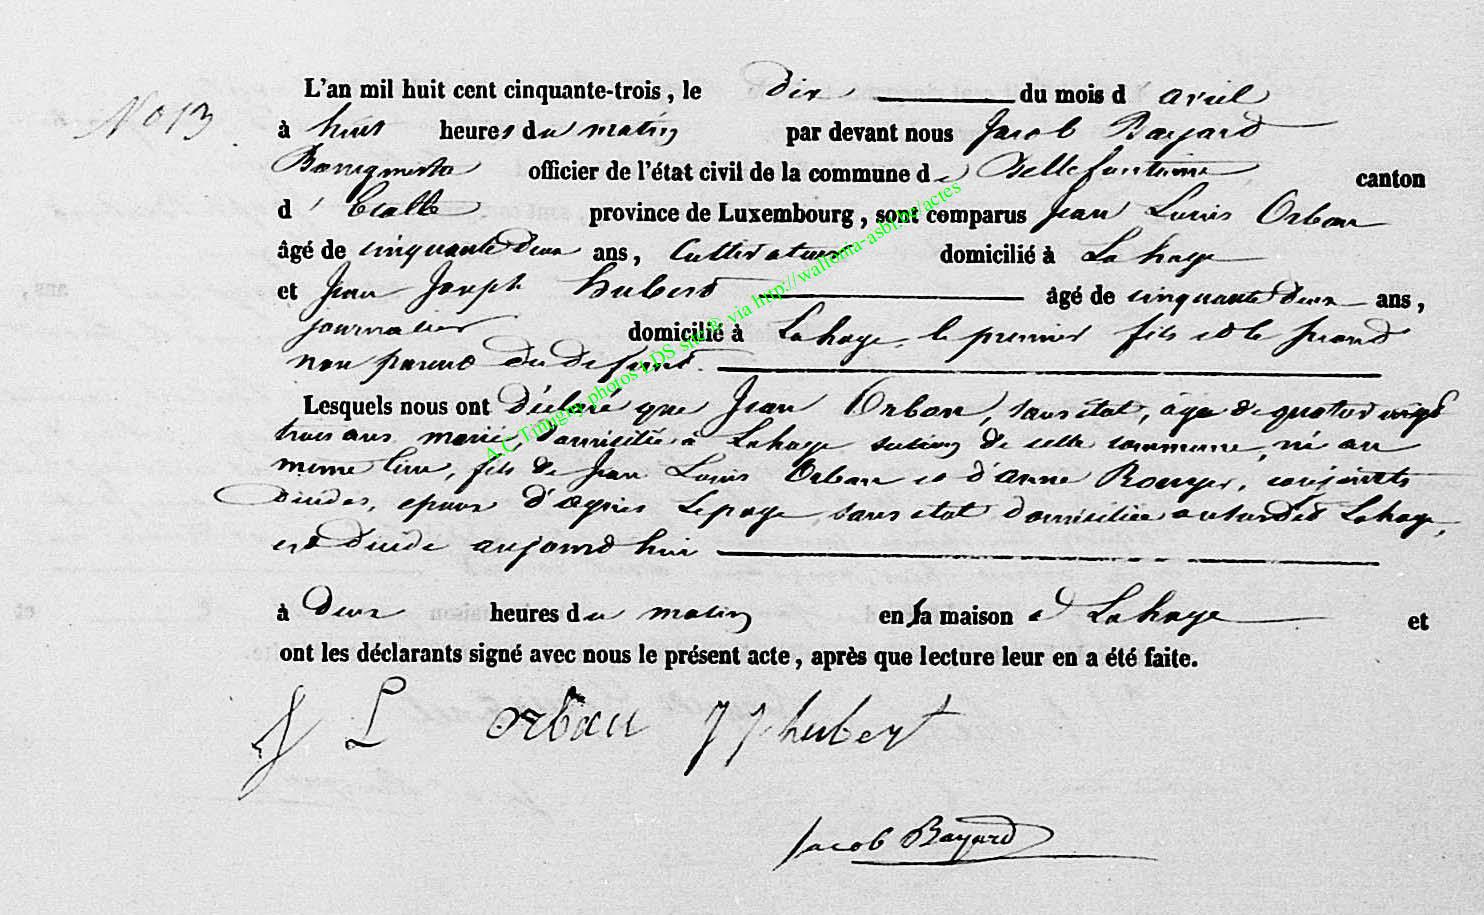 No 13
L'an mil huit cent cinquante-trois, le dix du mois d avril
à huit heures du matin par devant nous Jacob Bayard
Bourgmestre officier de l'état civil de la commune de Bellefontaine canton
d' Etalle province de Luxembourg, sont comparus Jean Louis Orban
âgé de cinquante deux ans, Cultivateur domicilié à Lahage
et Jean Joseph hubert âgé de cinquante deux ans,
journalier domicilié à Lahage, le premier fils et le second
non parent du defunt.
Lesquels nous ont déclaré que Jean Orban, sans état, âgé de quatre vingt
trois ans marié, domicilié à Lahage section de cette commune, né au
meme lieu, fils de Jean Louis Orban et d'anne conjoints
décédés, epoux d'agnès Lepage, sans etat domiciliée audit Lahage,
est décédé aujourd'hui
à deux heures du matin en sa maison à Lahage et
ont les déclarants signé avec nous le présent acte, après que lecture leur en a été faite.
J L orban J J hubert
Jacob Bayard
A.C Tintigny photos LDS site @ via http://wallonia-asbl.be/actes